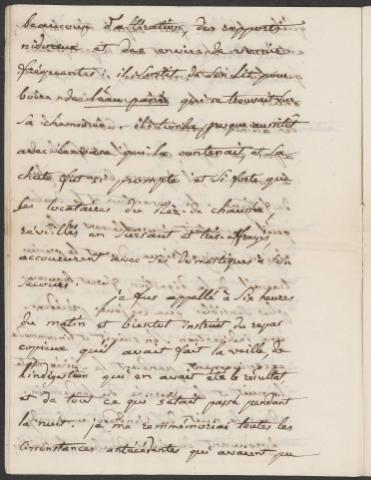 beaucoup d'alteration, des rapports
nidoreux et des envies de vomir
fréquentes; il sortit de son lit pour
boire de l'eau qui se trouvait sur
sa cheminée. il tomba presque aussitot
avec la qui la contenait, et sa
chute fut si prompte et si forte que
les locataires du Rez-de-chaussée,
reveillés en sursaut et très effrayés,
accoururent avec ses domestiques à son
secours.
je fus appellé à six heures
du matin et bientot instruit du repas
copieux qu'il avait fait la veille de
l'indigestion qui en avait été le resultat,
et de tout ce qui s'était passé pendant
la nuit. je me remémorai toutes les
circonstances antécédentes qui avaient pu